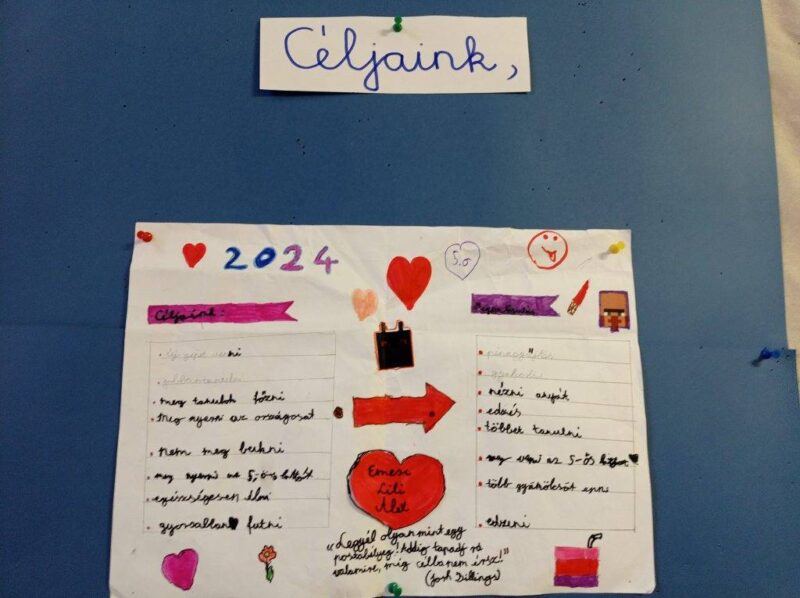 Céljaink,
2024
5.o
Céljaink:
meg tanulok főzni
Meg nyerni az országosat
nem meg bukni
meg nyerni az 5.-ös
egészségesen élni
gyorsabban futni
nézni anyát
edzés
többet tanulni
az 5-ös
több gyümölcsöt enni
edzeni
Emesi
Lili
"Legyél olyan mint egy
postabélyeg! Addig tapadj rá
valamire, míg célba nem érsz!"
(Josh Billings)